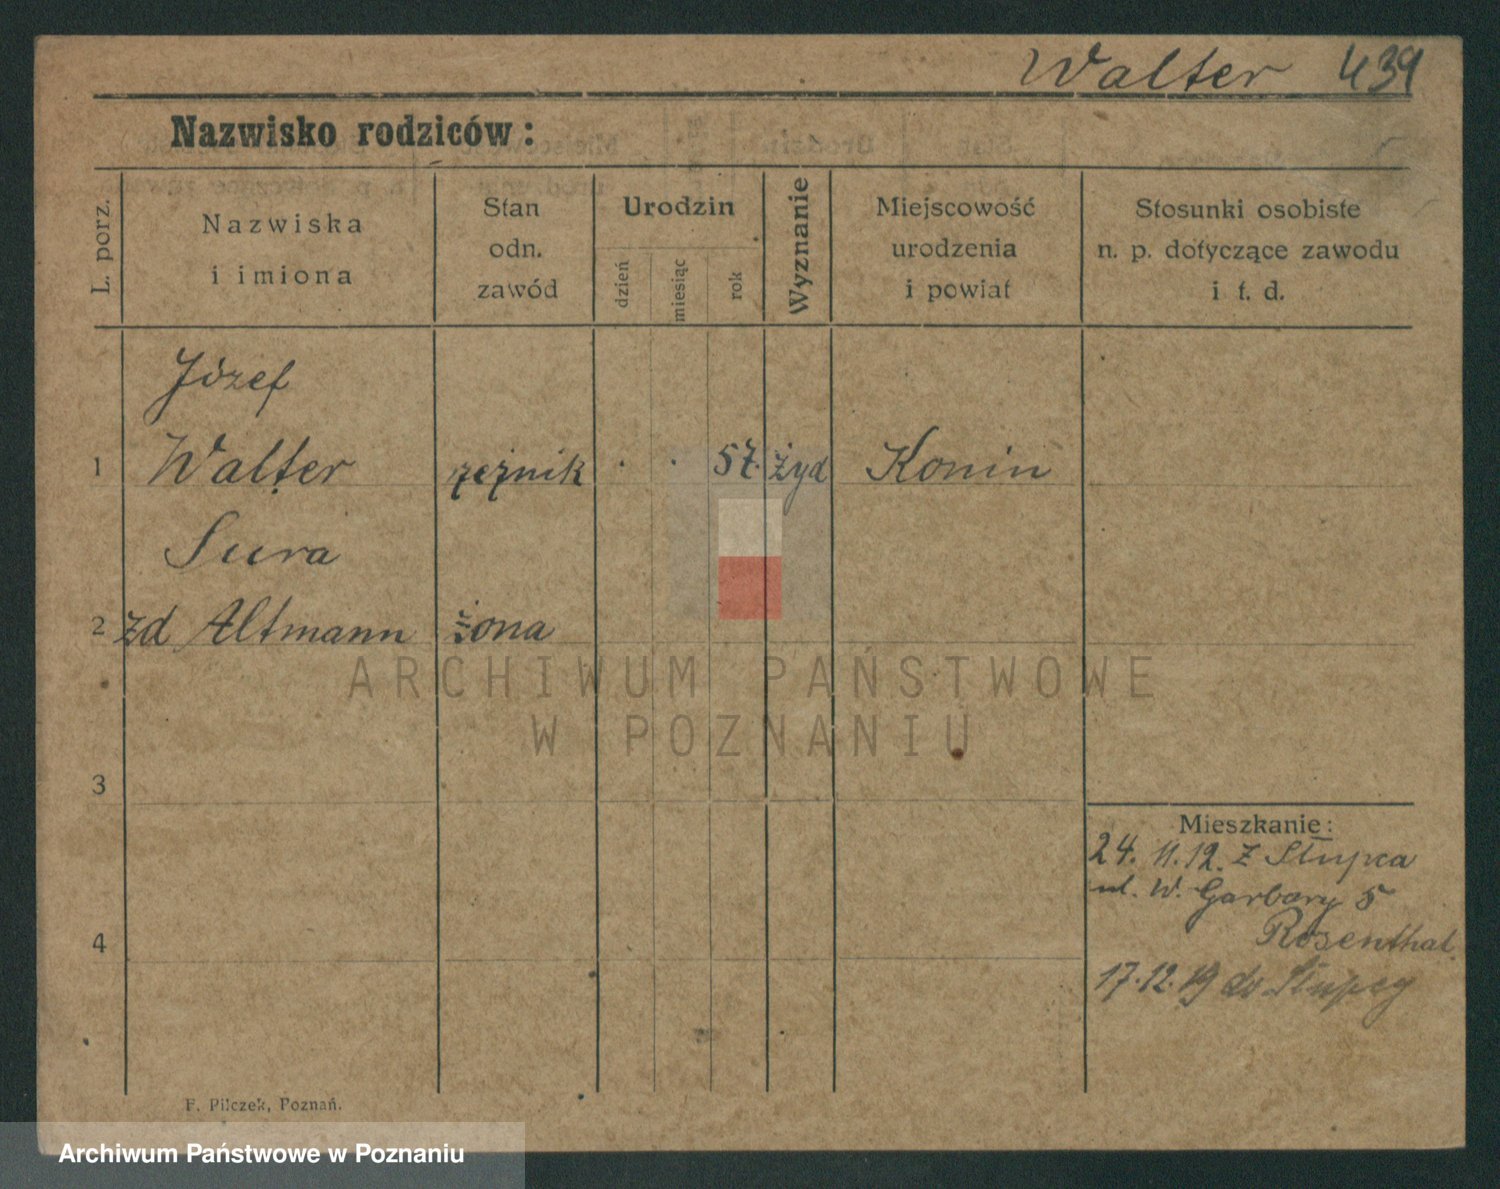 Walter 439
Nazwisko rodziców:
L. porz.
Nazwiska
i imiona
Stan
odn.
zawód
Urodzin
dzień
miesiąc
rok
Wyznanie
Miejscowość
urodzenia
i powiat
Stosunki osobiste
n. p. dotyczące zawodu
i t. d.
Józef
1 Walter rzeźnik . . 57. żyd Konin
Sura
2 zd Altmann żona
ARCHIWUM PAŃSTWOWE
W POZNANIU
3
Mieszkanie:
24. 11. 12. z Słupca
ul. W. Garbary 5
Rosenthal.
4
17.12.19 do Słupcy
F. Pilczek, Poznań.
Archiwum Państwowe w Poznaniu